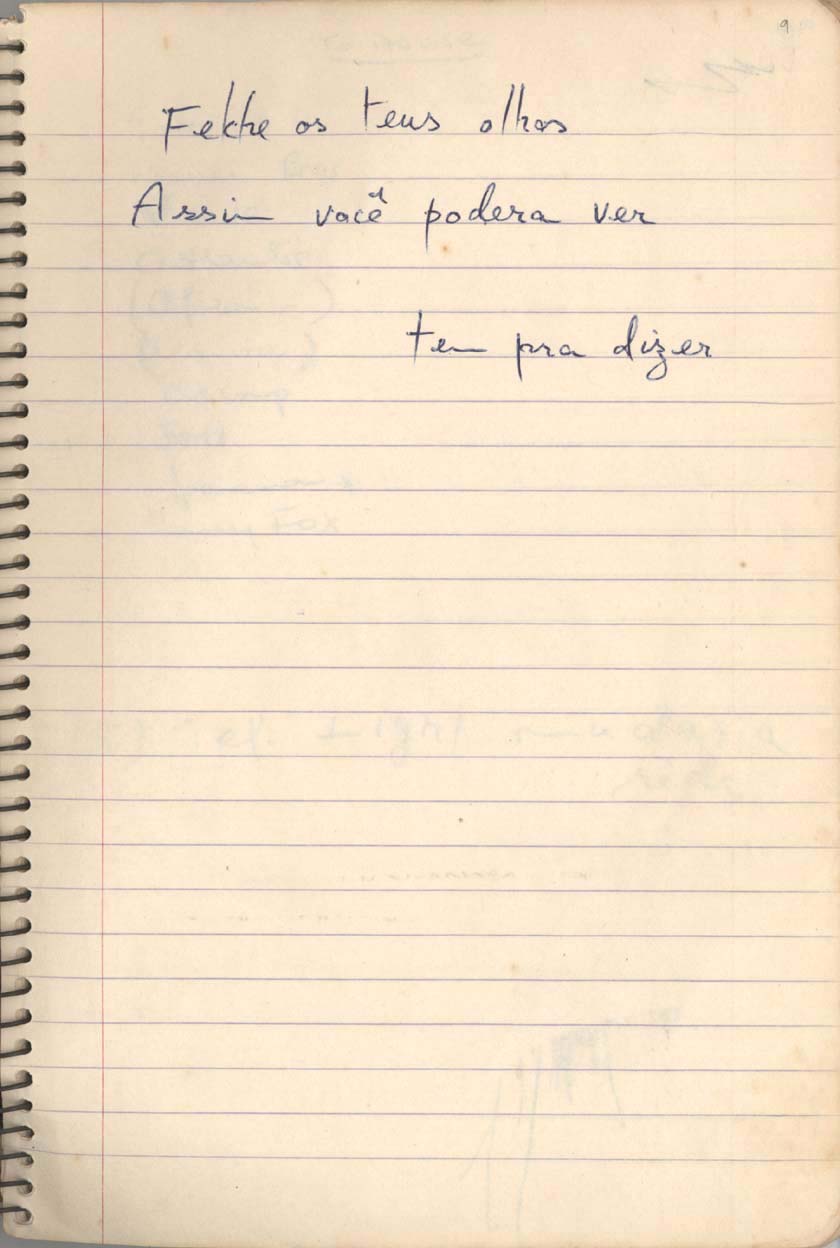 9
Fekhe os teus olhos
Assim você podera ver
tem pra dizer